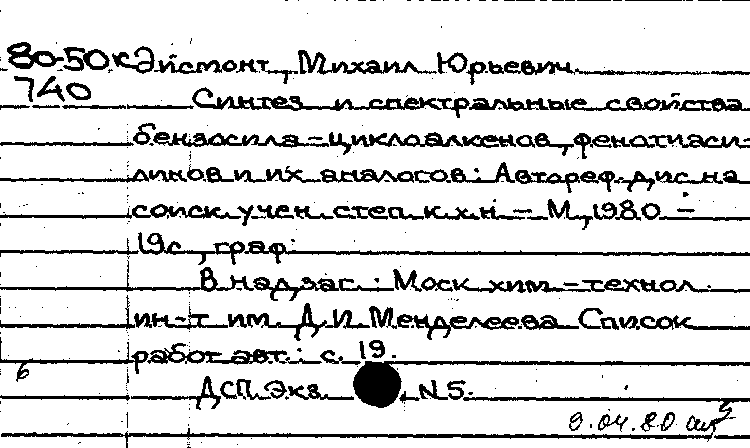 80-50к Эйсмонт, Михаил Юрьевич.
740 Синтез и спектральные свойства
бензосила-циклоалкенов, фенотиаси-
линов и их аналогов: Автореф. дис. на
соиск. учен. степ. к. х. н. - М., 1980. -
19 с., граф.
В надзаг.: Моск. хим.-технол.
ин-т им. Д. И. Менделеева. Список
работ авт.: с. 19.
6
ДСП. Экз. N 5.
9.04.80